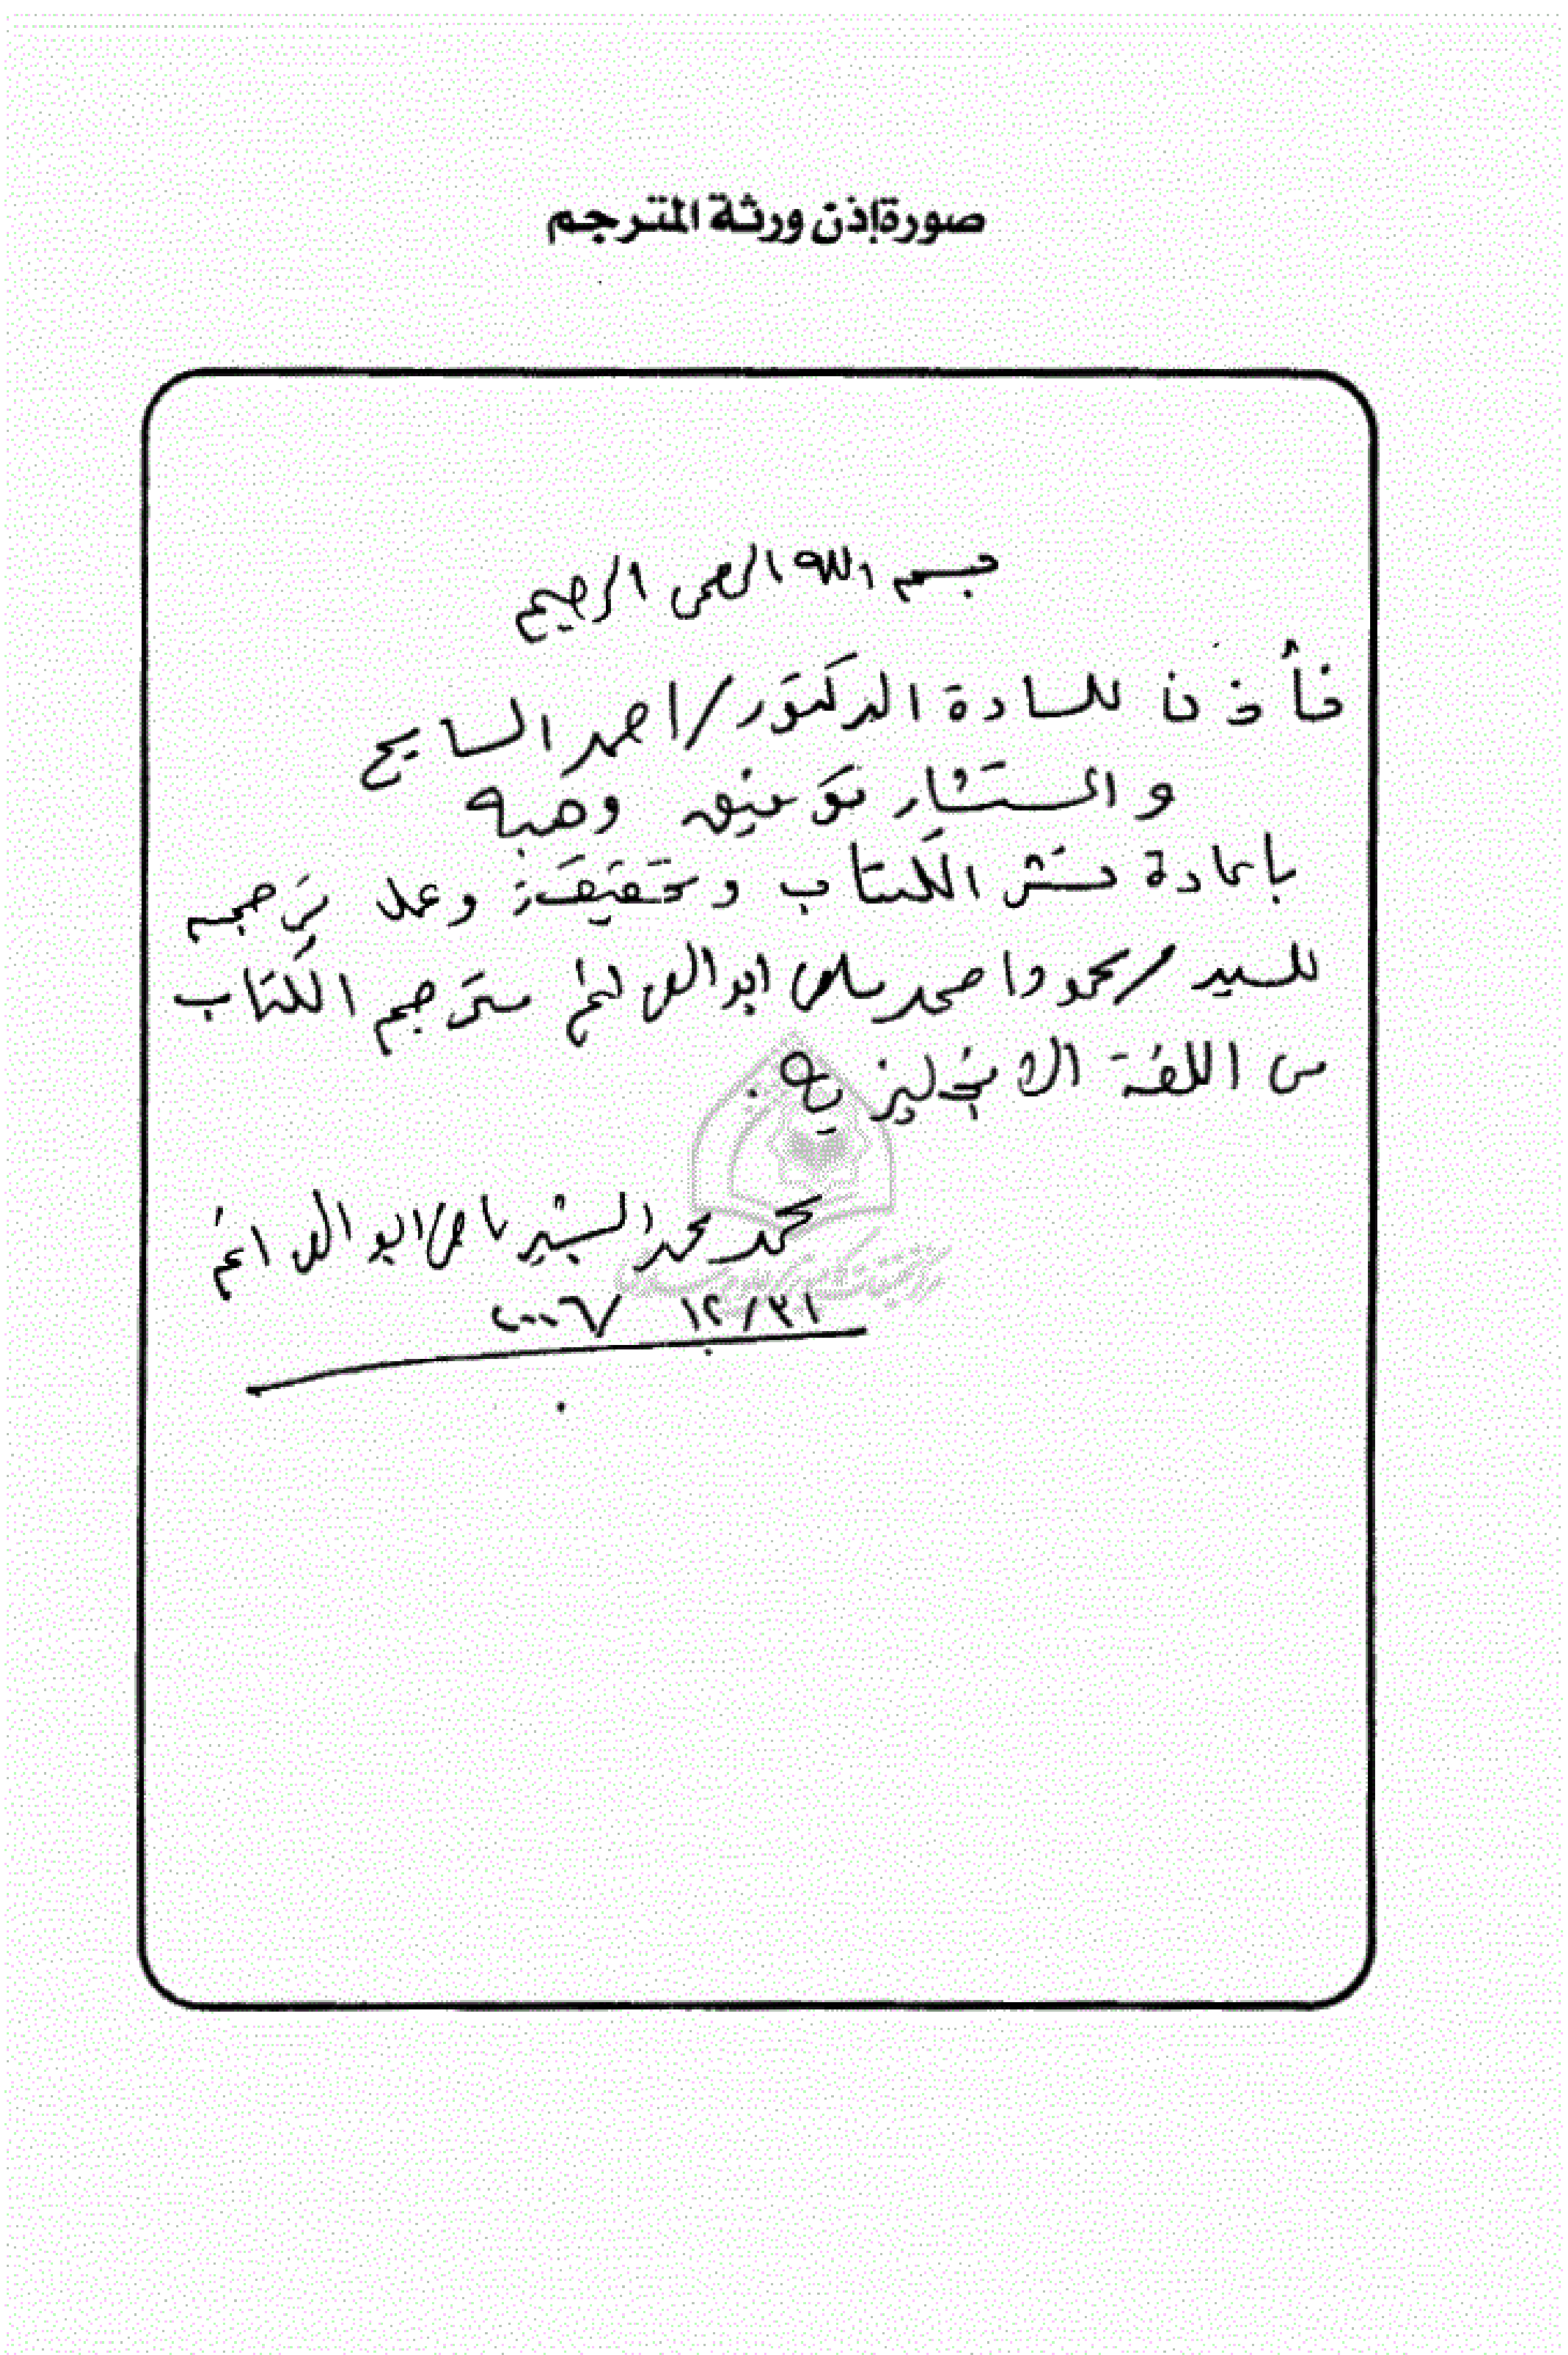 صورة إذن ورثة المترجم
بسم الله الرحمن الرحيم
نأذن للسادة الدكتور / احمد السايح
والمستشار توفيق وهبه
باعادة نشر الكتاب وتحقيقه وعمل ترجمه
للسيد / محمود احمد ماضى ابو العزائم مترجم الكتاب
من اللغة الانجليزية .
محمد محمد البشير ماضى ابو العزائم
٣١ / ١٢ / ٢٠٠٦